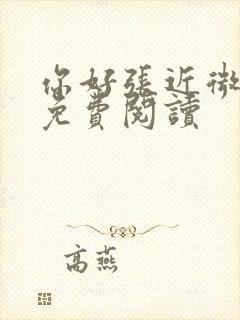 你好張近微
免費閱讀
高燕